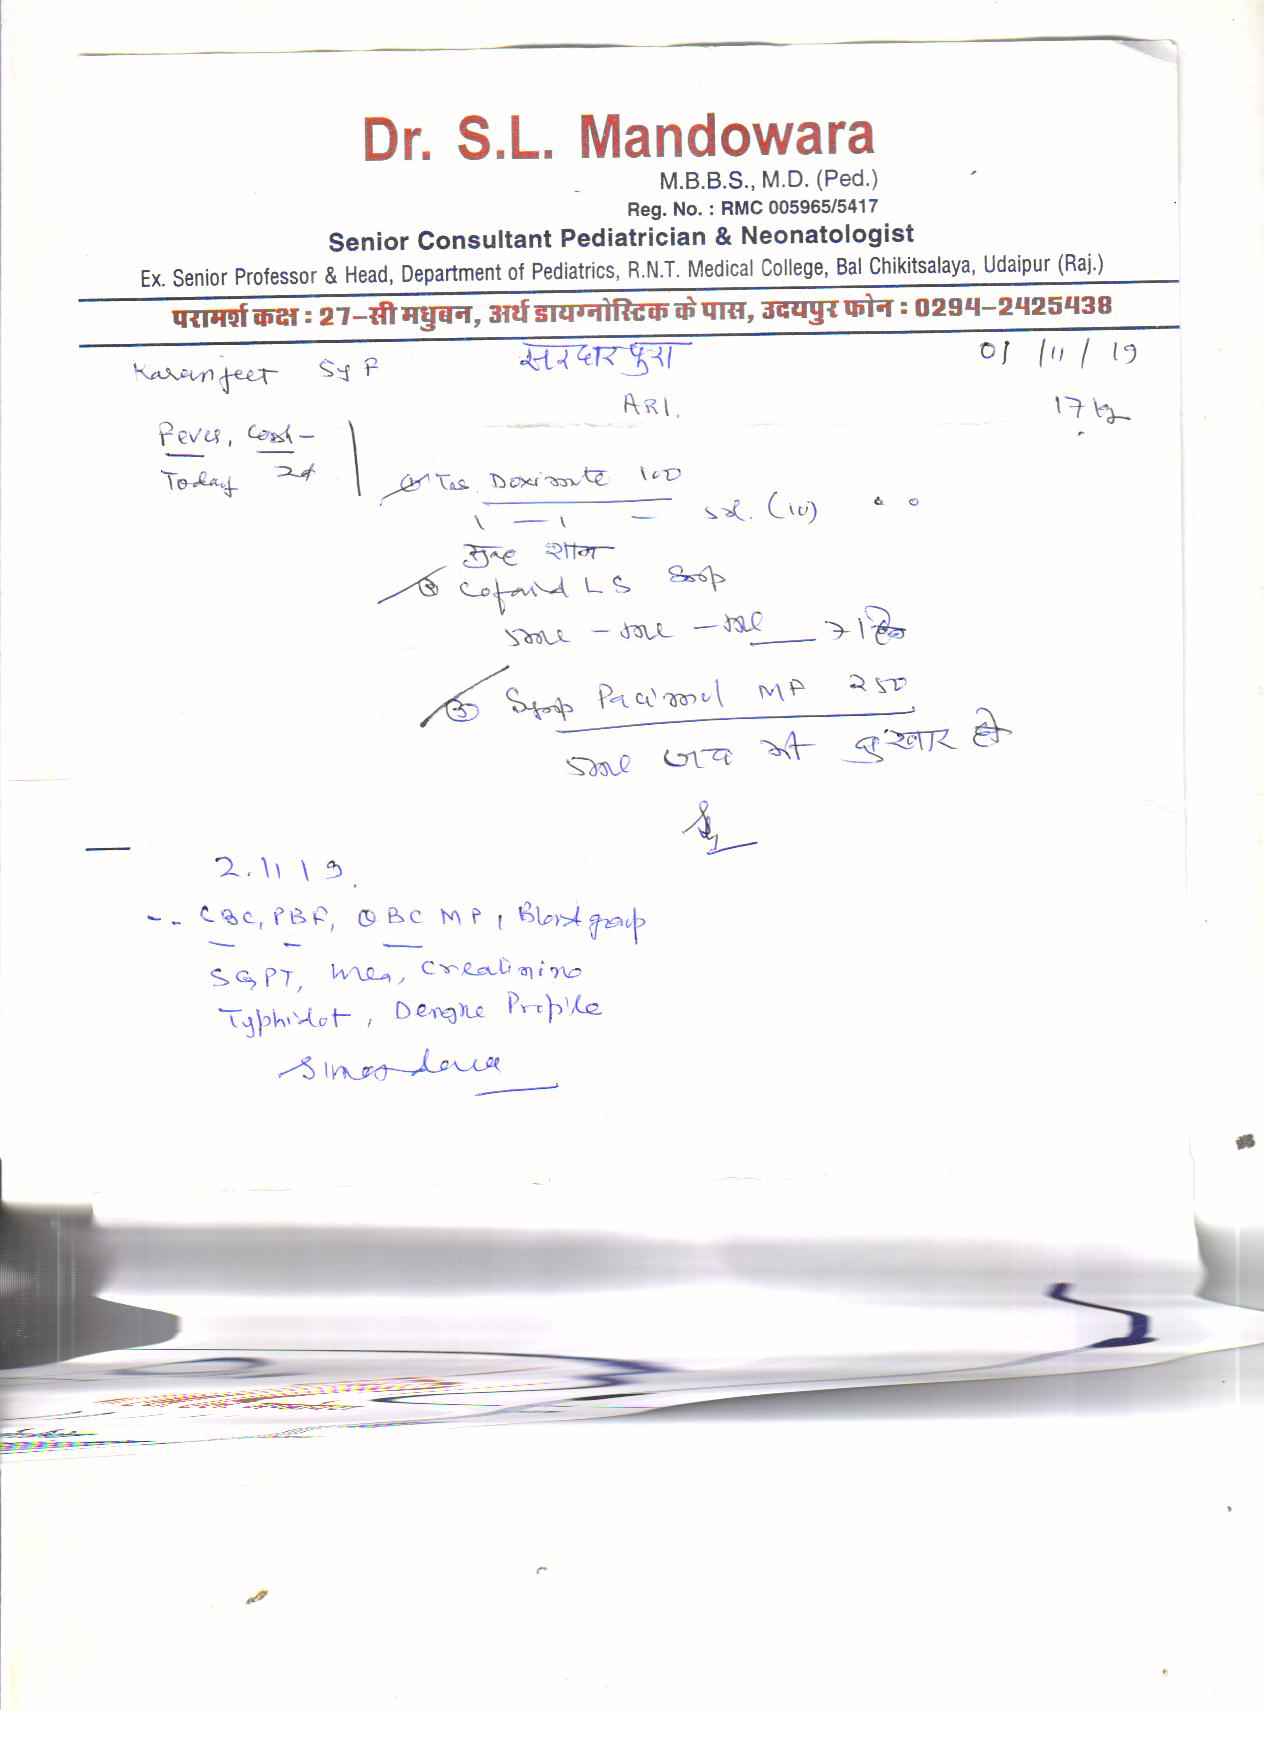 Dr. S.L. Mandowara
M.B.B.S., M.D. (Ped.)
Reg. No. : RMC 005965/5417
Senior Consultant Pediatrician & Neonatologist
Ex. Senior Professor & Head, Department of Pediatrics, R.N.T. Medical College, Bal Chikitsalaya, Udaipur (Raj.)
परामर्श कक्ष : 27–सी मधुबन, अर्थ डायग्नोस्टिक के पास, उदयपुर फोन : 0294–2425438
Karanjeet 5y F सरदारपुरा 01/11/19
ARI. 17 kg
Fever,
Today 2d
① Tab. Doximute 100
1 — 1 — (10)
सुबह शाम
② LS Syrup
5ml – 5ml – 5ml
③ Syrup Pacimol MP 250
5ml जब भी बुखार हो
2.11.19.
CBC, PBF, QBC MP, Blood group
SGPT, Urea, Creatinine
Typhidot, Dengue Profile